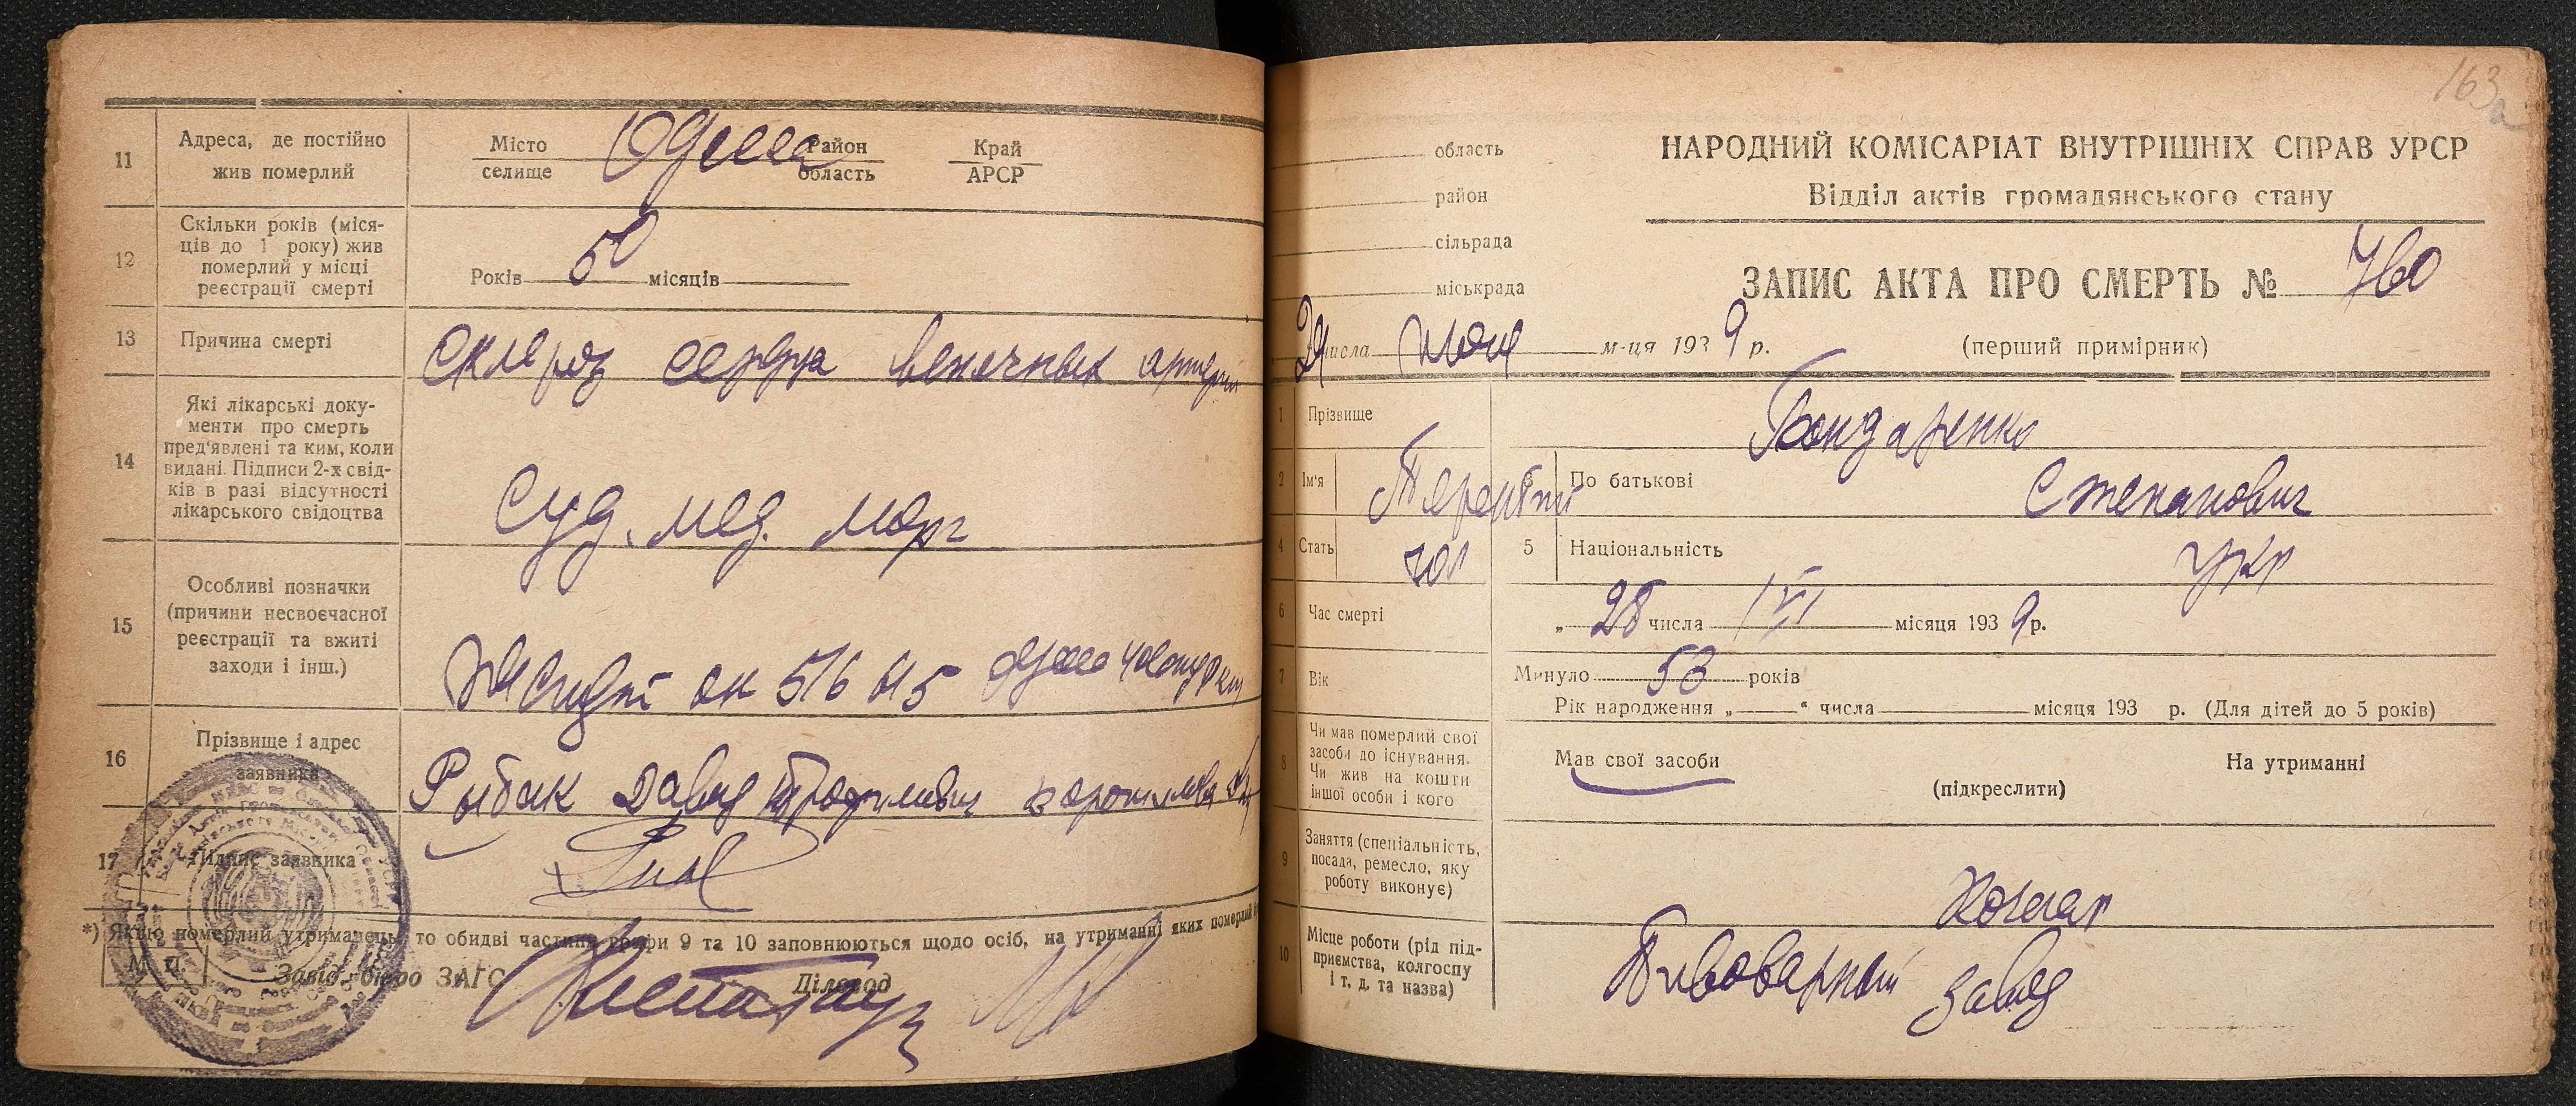 11
Адреса, де постійно
жив померлий
Місто
селище
Одесса
Район
область
Край
АРСР
12
Скільки років (міся-
ців до 1 року) жив
померлий у місці
реєстрації смерті
Років 50 місяців
13
Причина смерті
Склероз сердца венечных артерий
14
Які лікарські доку-
менти про смерть
пред'явлені та ким, коли
видані. Підписи 2-х свід-
ків в разі відсутності
лікарського свідоцтва
Суд. мед. морг
15
Особливі позначки
(причини несвоєчасної
реєстрації та вжиті
заходи і інш.)
516 615
16
Прізвище і адрес
заявника
Рыбак Давид
17
Підпис заявника
*) Якщо померлий утриманець, то обидві частини графи 9 та 10 заповнюються щодо осіб, на утриманні яких померлий
М. П.
Завід. бюро ЗАГС
Діловод
163а
область
район
сільрада
міськрада
числа м-ця 1939 р.
НАРОДНИЙ КОМІСАРІАТ ВНУТРІШНІХ СПРАВ УРСР
Відділ актів громадянського стану
ЗАПИС АКТА ПРО СМЕРТЬ № 760
(перший примірник)
1
Прізвище
Бондаренко
2
Ім'я
Терентий
3
По батькові
Степанович
4
Стать
чол
5
Національність
укр
6
Час смерті
„ 28 числа VI місяця 1939 р.
7
Вік
Минуло 53 років
Рік народження „ “ числа місяця 193 р. (Для дітей до 5 років)
8
Чи мав померлий свої
засоби до існування.
Чи жив на кошти
іншої особи і кого
Мав свої засоби
На утриманні
(підкреслити)
9
Заняття (спеціальність,
посада, ремесло, яку
роботу виконує)
Кочегар
10
Місце роботи (рід під-
приємства, колгоспу
і т. д. та назва)
Пивоварный завод